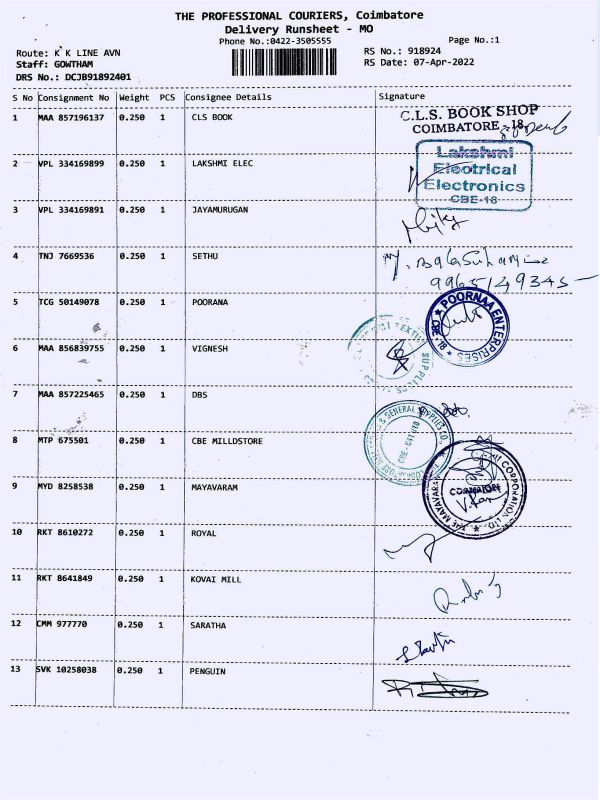 THE PROFESSIONAL COURIERS, Coimbatore
Delivery Runsheet - MO
Phone No.:0422-3505555 Page No.:1
Route: K K LINE AVN RS No.: 918924
Staff: GOWTHAM RS Date: 07-Apr-2022
DRS No.: DCJB91892401
S No Consignment No Weight PCS Consignee Details Signature
1 MAA 857196137 0.250 1 CLS BOOK C.L.S. BOOK SHOP
COIMBATORE - 18
2 VPL 334169899 0.250 1 LAKSHMI ELEC Lakshmi
Electrical
Electronics
CBE-18
3 VPL 334169891 0.250 1 JAYAMURUGAN
4 TNJ 7669536 0.250 1 SETHU
9965149345
5 TCG 50149078 0.250 1 POORANA POORNAA ENTERPRISES
6 MAA 856839755 0.250 1 VIGNESH TEXTILE SUPPLIERS
7 MAA 857225465 0.250 1 DBS
8 MTP 675501 0.250 1 CBE MILLDSTORE & GENERAL SUPPLIES CO.
9 MYD 8258538 0.250 1 MAYAVARAM THE MAYAVARAM CORPORATION LTD
COIMBATORE
10 RKT 8610272 0.250 1 ROYAL
11 RKT 8641849 0.250 1 KOVAI MILL
12 CMM 977770 0.250 1 SARATHA
13 SVK 10258038 0.250 1 PENGUIN